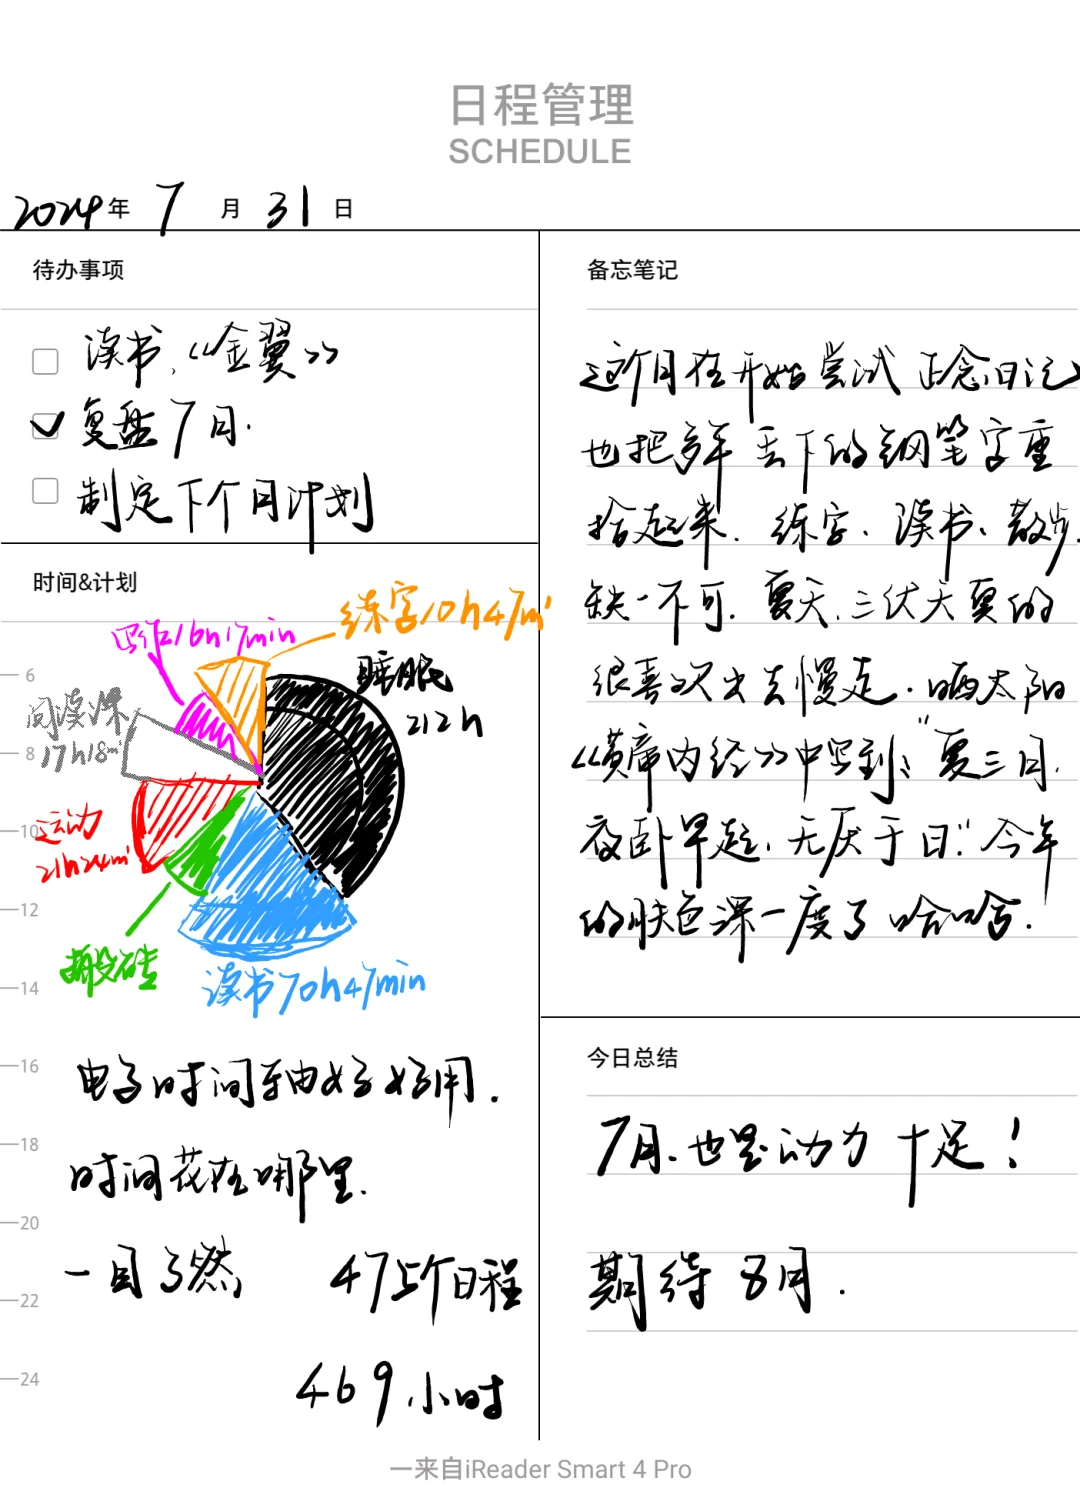 日程管理
SCHEDULE
2024年 7 月 31 日
待办事项
读书.《金翼》
复盘7月.
制定下个月计划
时间&计划
6
8
10
12
14
16
18
20
22
24
练字10h47m
写作16h17min
睡眠
212h
阅读课
17h18m
运动
21h24m
搬砖
读书70h47min
电子时间轴好好用.
时间花在哪里.
一目了然
475个日程
469小时
备忘笔记
这个月在开始尝试正念日记
也把多年丢下的钢笔字重
拾起来. 练字、读书、散步.
缺一不可. 夏天.三伏天真的
很喜欢出去慢走. 晒太阳
《黄帝内经》中写到:"夏三月.
夜卧早起, 无厌于日." 今年
的肤色深一度了哈哈.
今日总结
7月.也是动力十足!
期待8月.
一来自iReader Smart 4 Pro